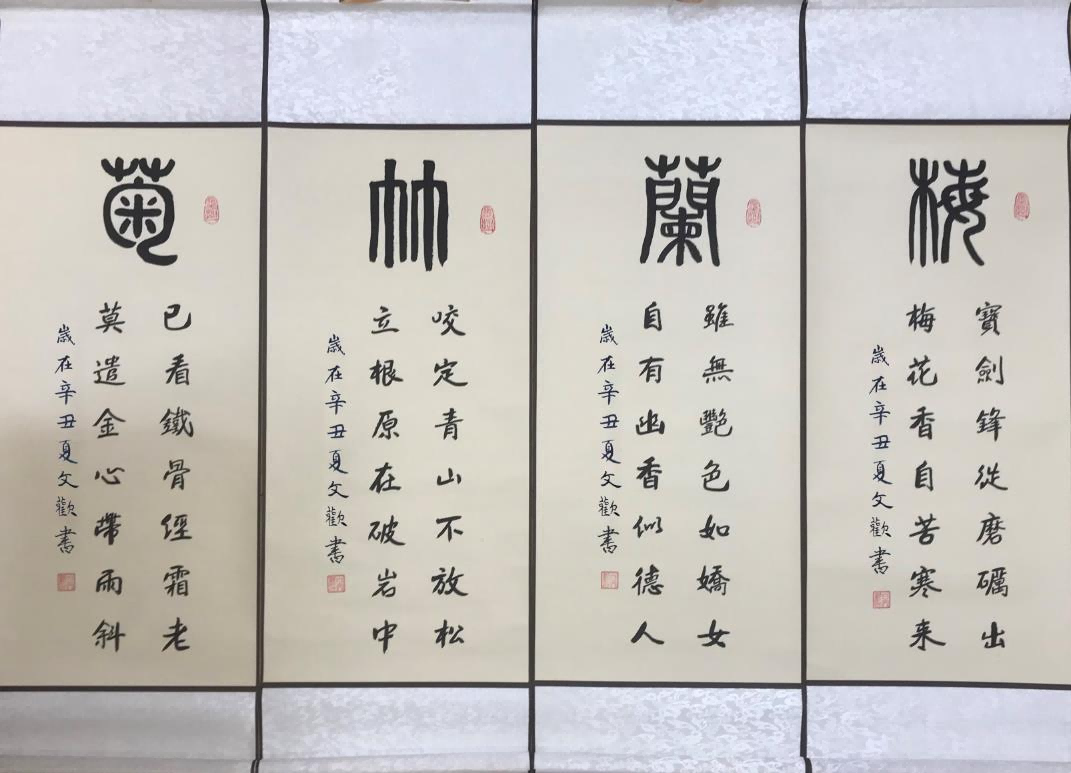 梅
寶劍鋒從磨礪出
梅花香自苦寒来
歲在辛丑夏文歡書
蘭
雖無艷色如嬌女
自有幽香似德人
歲在辛丑夏文歡書
竹
咬定青山不放松
立根原在破岩中
歲在辛丑夏文歡書
菊
已看鐵骨經霜老
莫遣金心帶雨斜
歲在辛丑夏文歡書